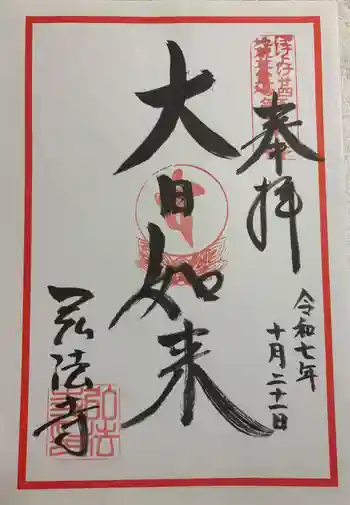 奉拝
令和七年
十月二十一日
大日如来
弘法寺
弘法